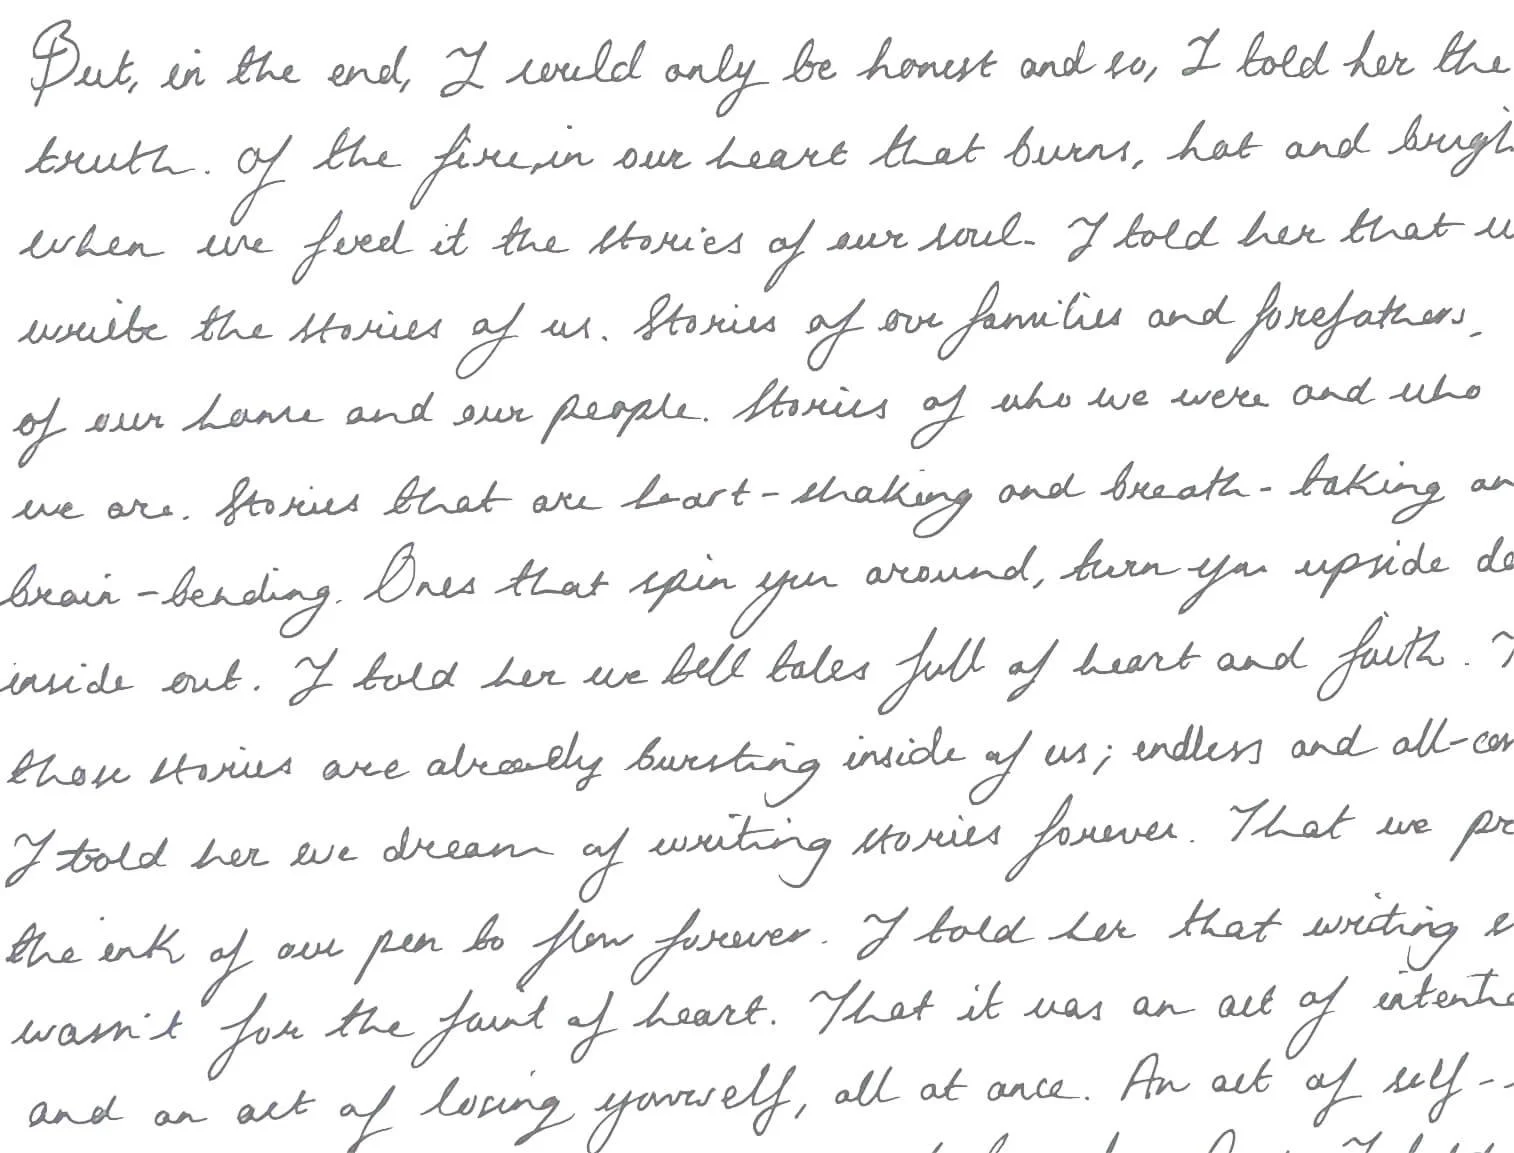 But, in the end, I could only be honest and so, I told her the
truth. Of the fire, in our heart that burns, hot and brigh
when we feed it the stories of our soul. I told her that w
write the stories of us. Stories of our families and forefathers,
of our home and our people. Stories of who we were and who
we are. Stories that are heart-shaking and breath-taking an
brain-bending. Ones that spin you around, turn you upside do
inside out. I told her we tell tales full of heart and faith. T
those stories are already bursting inside of us; endless and all-con
I told her we dream of writing stories forever. That we pr
the ink of our pen to flow forever. I told her that writing s
wasn't for the faint of heart. That it was an act of intentio
and an act of losing yourself, all at once. An act of self-